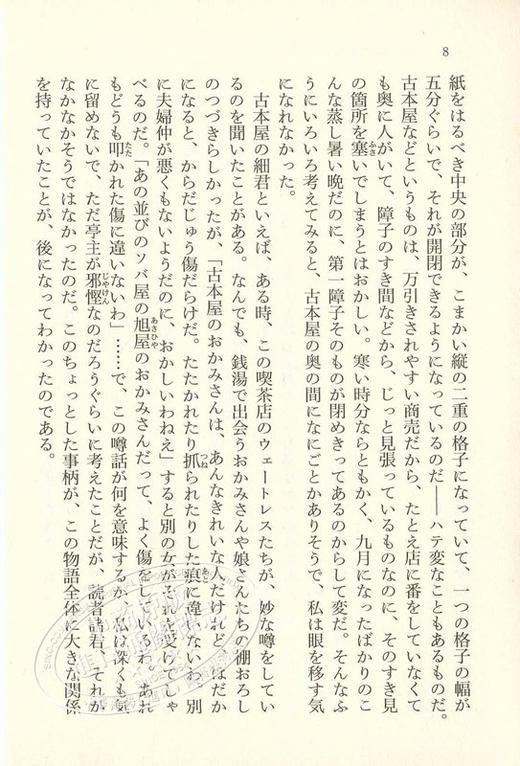 8
紙をはるべき中央の部分が、こまかい縦の二重の格子になっていて、一つの格子の幅が
五分ぐらいで、それが開閉できるようになっているのだ――ハテ変なこともあるものだ。
古本屋などというものは、万引きされやすい商売だから、たとえ店に番をしていなくて
も奥に人がいて、障子のすき間などから、じっと見張っているものなのに、そのすき見
の箇所を塞いでしまうとはおかしい。寒い時分ならともかく、九月になったばかりのこ
んな蒸し暑い晩だのに、第一障子そのものが閉めきってあるのからして変だ。そんなふ
うにいろいろ考えてみると、古本屋の奥の間になにごとかありそうで、私は眼を移す気
になれなかった。
古本屋の細君といえば、ある時、この喫茶店のウェートレスたちが、妙な噂をしてい
るのを聞いたことがある。なんでも、銭湯で出会うおかみさんや娘さんたちの棚おろし
のつづきらしかったが、「古本屋のおかみさんは、あんなきれいな人だけれど、はだか
になると、からだじゅう傷だらけだ。たたかれたり抓られたりした痕に違いないわ。別
に夫婦仲が悪くもないようだのに、おかしいわねえ」すると別の女がそれを受けてしゃ
べるのだ。「あの並びのソバ屋の旭屋のおかみさんだって、よく傷をしているわ。あれ
もどうも叩かれた傷に違いないわ」……で、この噂話が何を意味するか、私は深くも気
に留めないで、ただ亭主が邪慳なのだろうぐらいに考えたことだが、読者諸君、それが
なかなかそうではなかったのだ。このちょっとした事柄が、この物語全体に大きな関係
を持っていたことが、後になってわかったのである。